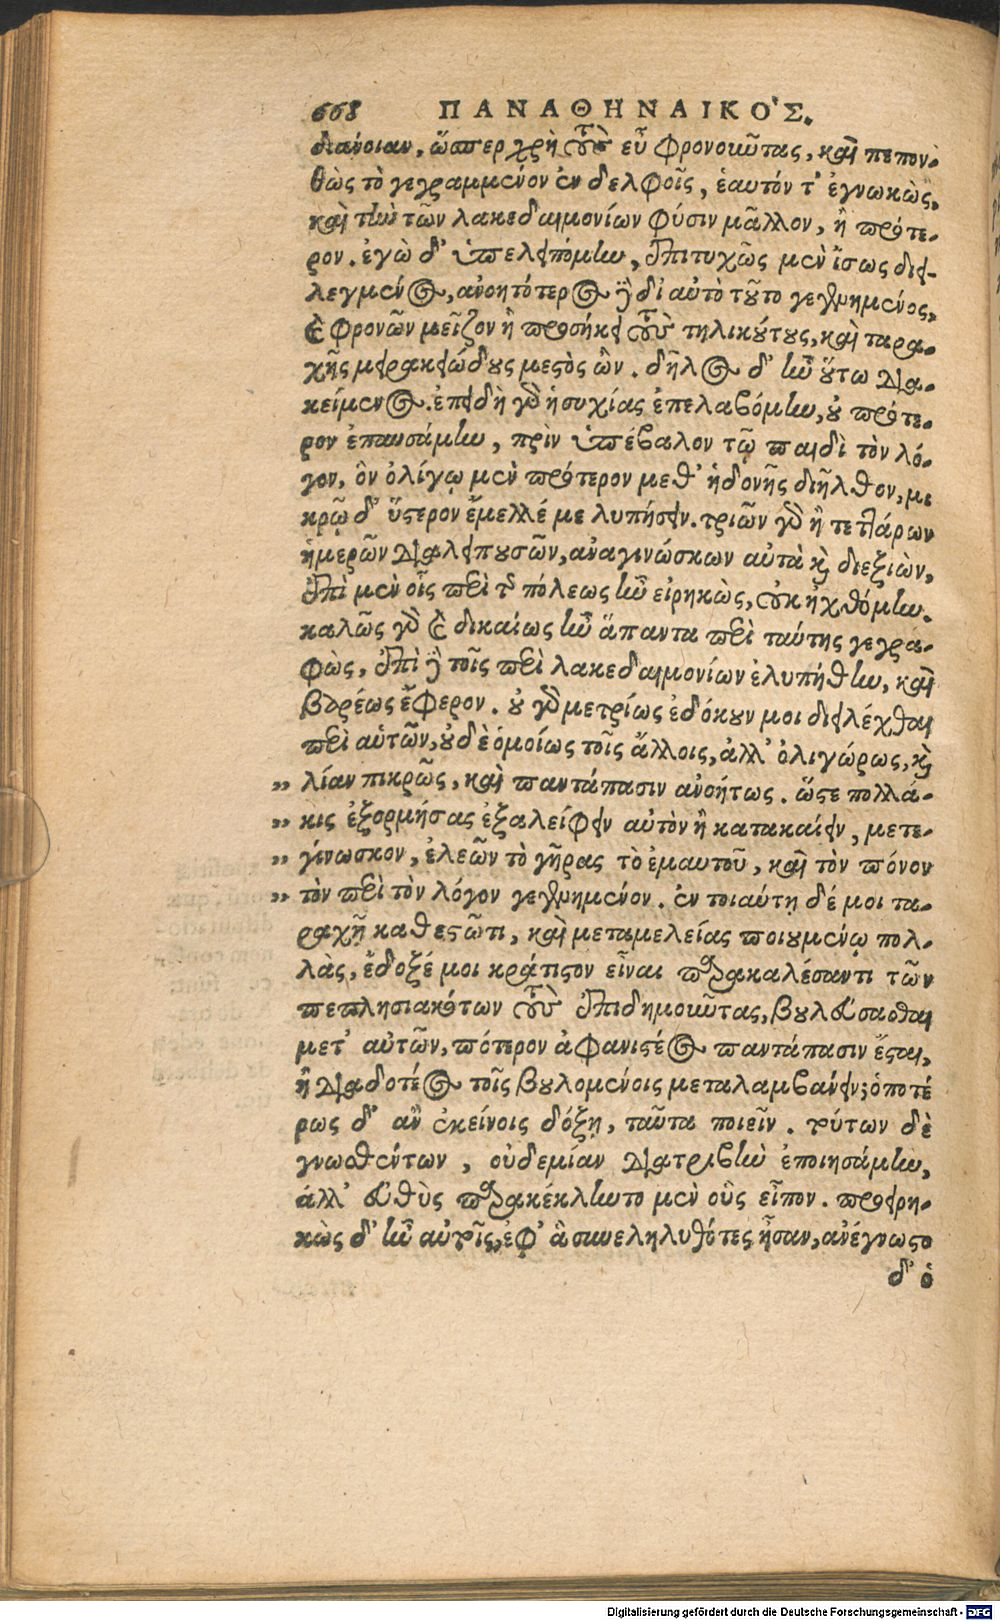 668 ΠΑΝΑΘΗΝΑΙΚΟ΄Σ.
διάνοιαν, ὥσπερ χρὴ τοὺς εὖ φρονοῦντας, καὶ πεπον-
θὼς τὸ γεγραμμένον ἐν δελφοῖς, ἑαυτόν τ' ἐγνωκὼς,
καὶ τὴν τῶν λακεδαιμονίων φύσιν μᾶλλον, ἢ πρότε-
ρον. ἐγὼ δ' ὑπελειπόμην, ἐπιτυχῶς μὲν ἴσως διει-
λεγμένος, ἀνοητότερος δὲ δι' αὐτὸ τοῦτο γεγενημένος,
καὶ φρονῶν μεῖζον ἢ προσήκει τοὺς τηλικούτους, καὶ ταρα-
χῆς μειρακιώδους μεστὸς ὤν. δῆλος δ' ἦν οὕτω δια-
κείμενος. ἐπειδὴ γὰρ ἡσυχίας ἐπελαβόμην, οὐ πρότε-
ρον ἐπαυσάμην, πρὶν ὑπέβαλον τῷ παιδὶ τὸν λό-
γον, ὃν ὀλίγῳ μὲν πρότερον μεθ' ἡδονῆς διῆλθον, μι
κρῷ δ' ὕστερον ἔμελλέ με λυπήσειν. τριῶν γὰρ ἢ τεττάρων
ἡμερῶν διαλειπουσῶν, ἀναγινώσκων αὐτὰ καὶ διεξιὼν,
ἐπὶ μὲν οἷς περὶ τῆς πόλεως ἦν εἰρηκὼς, οὐκ ἠχθόμην.
καλῶς γὰρ καὶ δικαίως ἦν ἅπαντα περὶ ταύτης γεγρα-
φὼς, ἐπὶ δὲ τοῖς περὶ λακεδαιμονίων ἐλυπήθην, καὶ
βαρέως ἔφερον. οὐ γὰρ μετρίως ἐδόκουν μοι διειλέχθαι
περὶ αὐτῶν, οὐδὲ ὁμοίως τοῖς ἄλλοις, ἀλλ' ὀλιγώρως, καὶ
„ λίαν πικρῶς, καὶ παντάπασιν ἀνοήτως. ὥστε πολλά-
„ κις ἐξορμήσας ἐξαλείφειν αὐτὸν ἢ κατακαίειν, μετε-
„ γίνωσκον, ἐλεῶν τὸ γῆρας τὸ ἐμαυτοῦ, καὶ τὸν πόνον
„ τὸν περὶ τὸν λόγον γεγενημένον. ἐν τοιαύτῃ δέ μοι τα-
ραχῇ καθεστῶτι, καὶ μεταμελείας ποιουμένῳ πολ-
λὰς, ἔδοξέ μοι κράτιστον εἶναι παρακαλέσαντι τῶν
πεπλησιακότων τοὺς ἐπιδημοῦντας, βουλεύσασθαι
μετ' αὐτῶν, πότερον ἀφανιστέος παντάπασιν ἔσται,
ἢ διαδοτέος τοῖς βουλομένοις μεταλαμβάνειν; ὁποτέ
ρως δ' ἂν ἐκείνοις δόξῃ, ταῦτα ποιεῖν. τούτων δὲ
γνωσθέντων, οὐδεμίαν διατριβὴν ἐποιησάμην,
ἀλλ' εὐθὺς παρακέκληντο μὲν οὓς εἶπον. προειρη-
κὼς δ' ἦν αὐτοῖς, ἐφ' ἃ συνεληλυθότες ἦσαν, ἀνέγνωστο
δ' ὁ
Digitalisierung gefördert durch die Deutsche Forschungsgemeinschaft - DFG